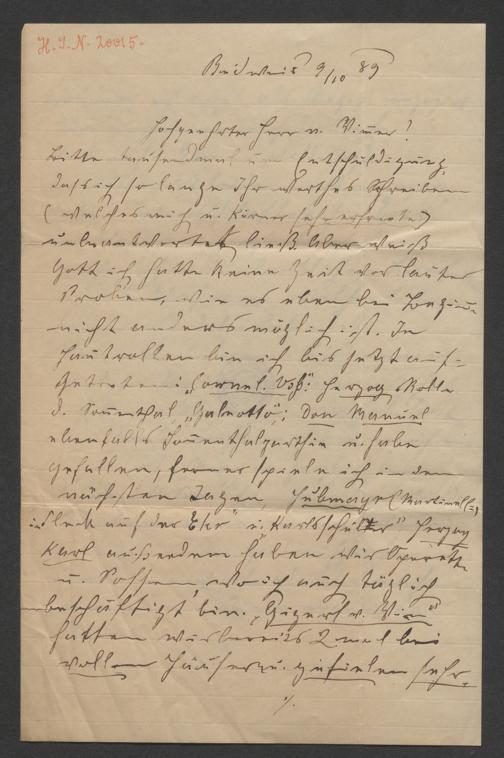 H. I. N. 20015.
Budweis 9/10 89
Hochgeehrter Herr v. Vinzer!
Bitte tausendmal um Entschuldigung,
dass ich so lange Ihr werthes Schreiben
(welches mich u. Körner sehr erfreute)
unbeantwortet ließ. Aber weiß
Gott ich hatte keine Zeit vor lauter
Proben, wie es eben bei
nicht anders möglich ist. In
Hautrollen bin ich bis jetzt auf=
getreten: „Cornel. Voß": Herzog Rolle
d. Sonnenthal „Galeotto": Don Manuel
ebenfalls Sonnenthalparthie u. habe
gefallen, ferner spiele ich in den
nächsten Tagen, Hubmayr (Martinelli=)
i. „Fleck auf der Ehr" u. Karlsschüler" Herzog
Karl außerdem haben wir Operette
u. Possen wo ich auch täglich
beschäftigt bin. „Gigerl v. Wien"
hatten wir bereits 2 mal bei
vollen Häuser u. gefielen sehr.
./.